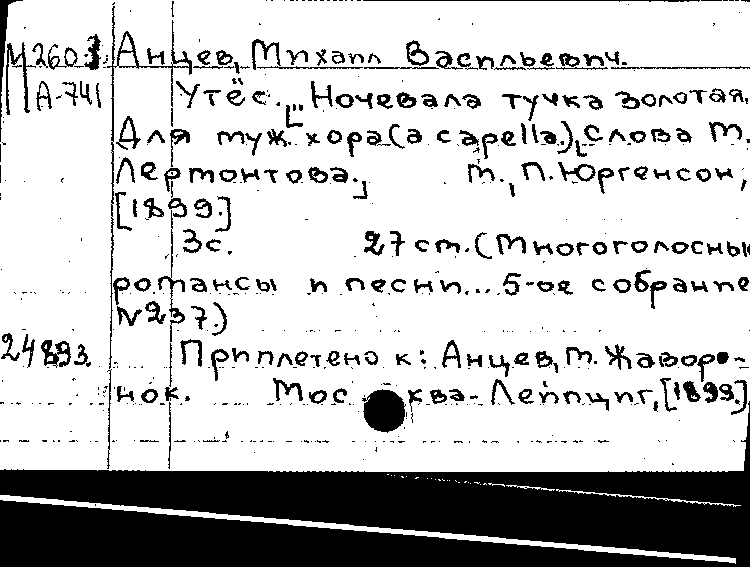 М260.3. Анцев, Михаил Васильевич.
А-741 Утёс. „Ночевала тучка золотая.
Для муж. хора (a capella.), слова М.
Лермонтова. М., П. Юргенсон,
[1899.]
3с. 27 cm. (Многоголосны
романсы и песни... 5-ое собрание
N237.)
24893. Приплетено к: Анцев, М. Жаворо-
нок. Москва-Лейпциг, [1899.]